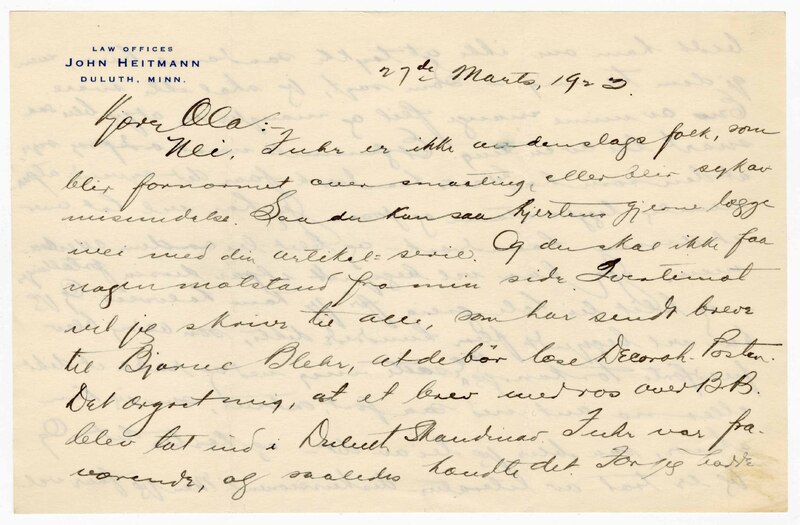 LAW OFFICES
JOHN HEITMANN
DULUTH, MINN.
27de Marts, 1923.
Kjære Ola:-
Nei, Fuhr er ikke andenslags folk, som
blir fornørmet over smaating, eller blir syk av
misundelse. Saa du kan saa hjertens gjerne lægge
ivei med din artikel-serie. Og du skal ikke faa
nogen motstand fra min side. Tvertimot
vil jeg skrive til alle, som har sendt breve
til Bjarne Blehr, at de bör læse Decorah-Posten.
Det ærgret mig, at et brev med ros over B.B.
blev tat ind i Duluth Skandinav. Fuhr var fra-
værende, og saaledes hændte det. For jeg hadde